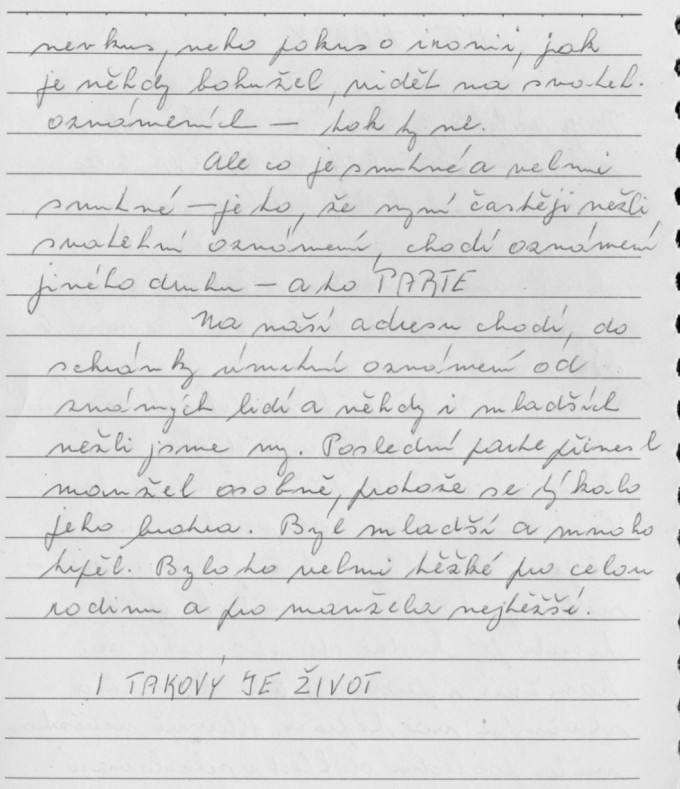 nevkus, nebo pokus o ironii, jak
je někdy bohužel, vidět na svateb.
oznámeních — tak ty ne.
Ale co je smutné a velmi
smutné — je to, že nyní častěji nežli
svatební oznámení, chodí oznámení
jiného druhu — a to PARTE
Na naší adresu chodí, do
schránky úmrtní oznámení od
známých lidí a někdy i mladších
nežli jsme my. Poslední parte přinesl
manžel osobně, protože se týkalo
jeho bratra. Byl mladší a mnoho
trpěl. Bylo to velmi těžké pro celou
rodinu a pro manžela nejtěžší.
I TAKOVÝ JE ŽIVOT